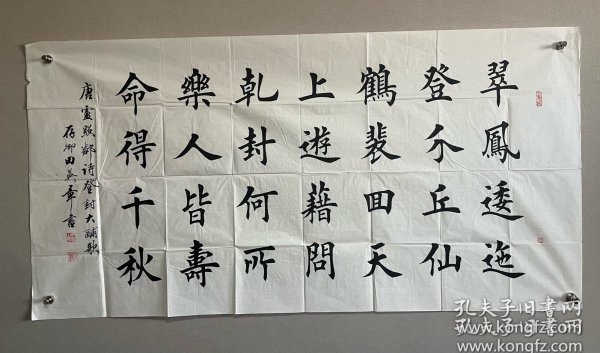 翠鳳逶迤
登介丘仙
鶴裴回天
上遊藉問
乾封何所
樂人皆壽
命得千秋
唐盧照鄰詩登封大酺歌
田英章書
孔夫子旧书网
www.kongfz.com
孔夫子旧书网
www.kongfz.com